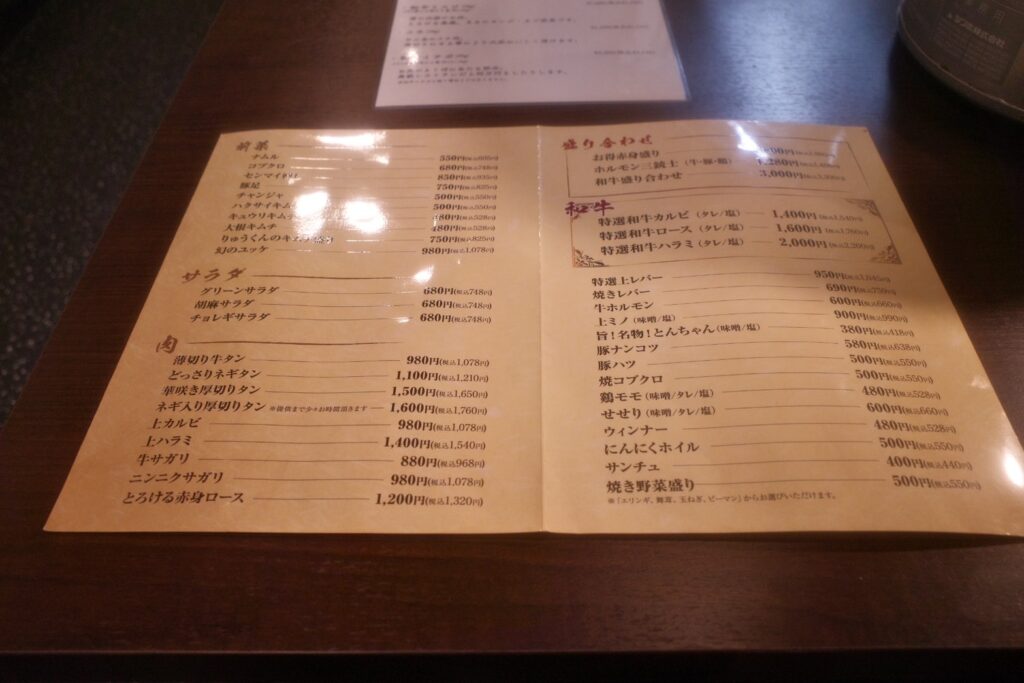 前菜
ナムル 550円(税込605円)
コブクロ 680円(税込748円)
センマイ 850円(税込935円)
豚足 750円(税込825円)
チャンジャ 500円(税込550円)
ハクサイキム 500円(税込550円)
キュウリキム 480円(税込528円)
大根キムチ 480円(税込528円)
りゅうくんのキムチ 750円(税込825円)
幻のユッケ 980円(税込1,078円)
サラダ
グリーンサラダ 680円(税込748円)
胡麻サラダ 680円(税込748円)
チョレギサラダ 680円(税込748円)
肉
薄切り牛タン 980円(税込1,078円)
どっさりネギタン 1,100円(税込1,210円)
華咲き厚切りタン 1,500円(税込1,650円)
ネギ入り厚切りタン ※提供まで少々お時間頂きます 1,600円(税込1,760円)
上カルビ 980円(税込1,078円)
上ハラミ 1,400円(税込1,540円)
牛サガリ 880円(税込968円)
ニンニクサガリ 980円(税込1,078円)
とろける赤身ロース 1,200円(税込1,320円)
盛り合わせ
お得赤身盛り
ホルモン三銃士（牛・豚・鶏） 1,280円
和牛盛り合わせ 3,000円(税込3,300円)
和牛
特選和牛カルビ（タレ/塩） 1,400円(税込1,540円)
特選和牛ロース（タレ/塩） 1,600円(税込1,760円)
特選和牛ハラミ（タレ/塩） 2,000円(税込2,200円)
特選上レバー 950円(税込1,045円)
焼きレバー 690円(税込759円)
牛ホルモン 600円(税込660円)
上ミノ（味噌/塩） 900円(税込990円)
旨！名物！とんちゃん（味噌/塩） 380円(税込418円)
豚ナンコツ 580円(税込638円)
豚ハツ 500円(税込550円)
焼コブクロ 500円(税込550円)
鶏モモ（味噌/タレ/塩） 480円(税込528円)
せせり（味噌/タレ/塩） 600円(税込660円)
ウィンナー 480円(税込528円)
にんにくホイル 500円(税込550円)
サンチュ 400円(税込440円)
焼き野菜盛り 500円(税込550円)
※「エリンギ、舞茸、玉ねぎ、ピーマン」からお選びいただけます。